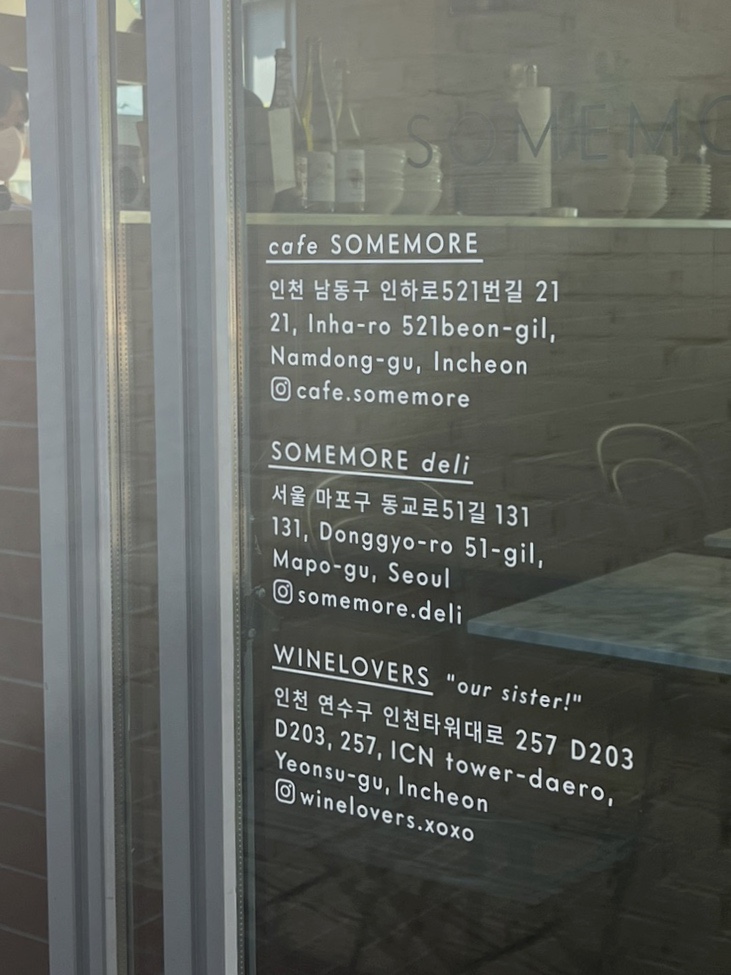 SOMEMO
cafe SOMEMORE
인천 남동구 인하로521번길 21
21, Inha-ro 521beon-gil,
Namdong-gu, Incheon
cafe.somemore
SOMEMORE deli
서울 마포구 동교로51길 131
131, Donggyo-ro 51-gil,
Mapo-gu, Seoul
somemore.deli
WINELOVERS "our sister!"
인천 연수구 인천타워대로 257 D203
D203, 257, ICN tower-daero,
Yeonsu-gu, Incheon
winelovers.xoxo